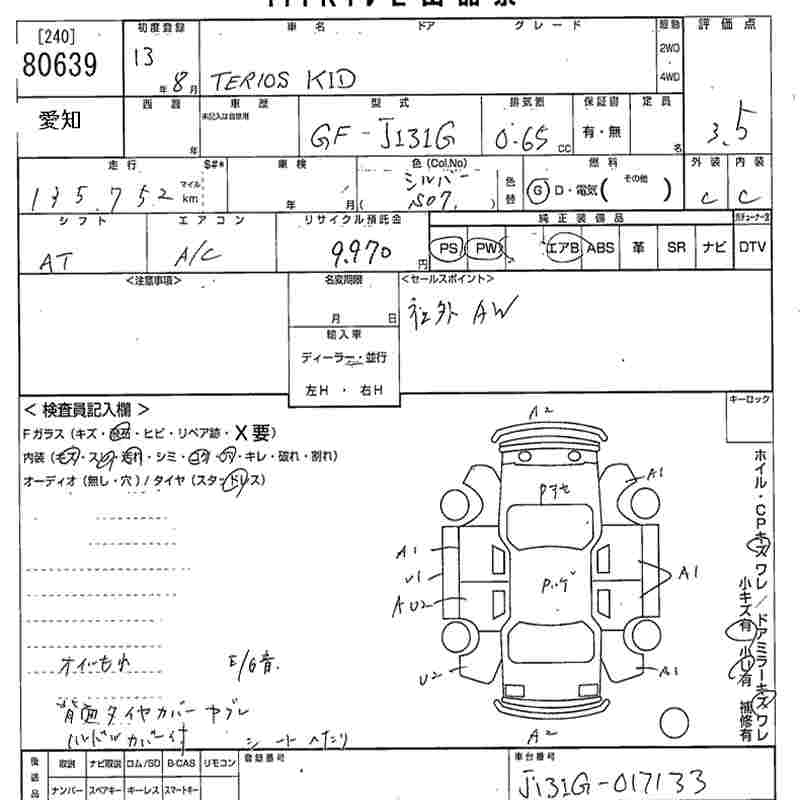 [240]
80639
初度登録
13
年 8 月
車名
ドア
グレード
TERIOS KID
駆動
2WD
4WD
評価点
3.5
愛知
西暦
年
車歴
未記入は自家用
型式
GF-J131G
排気量
0.65 CC
保証書
有・無
定員
名
走行
135.752
マイル
km
$#*
車検
年 月
色(Col.No)
シルバー
( S07. )
色替
燃料
G D・電気 (その他 )
外装
C
内装
C
シフト
AT
エアコン
A/C
リサイクル預託金
9.970 円
純正装備品
PS PW エアB ABS 革 SR ナビ DTV
<注意事項>
名変期限
月 日
輸入車
ディーラー・並行
左H ・ 右H
<セールスポイント>
社外 AW
< 検査員記入欄 >
Fガラス (キズ・飛石・ヒビ・リペア跡・X要)
内装 (キズ・スレ・汚れ・シミ・コゲ・穴・キレ・破れ・割れ)
オーディオ (無し・穴) / タイヤ (スタッドレス)
キーロック
A2
Pヌセ
A1
A1
U1
Pハゲ
A1
AU2
U2
A2
ホイル・CPキズ ワレ / ドアミラーキズ ワレ
小キズ有 小U有 補修有
オイルもれ
E/G音.
背面タイヤカバー ヤブレ
ハンドルカバー付
シート へたり
後送品
取説 ナビ取説 ロム/SD B-CAS リモコン
ナンバー スペアキー キーレス スマートキー
登録番号
車台番号
J131G-017133